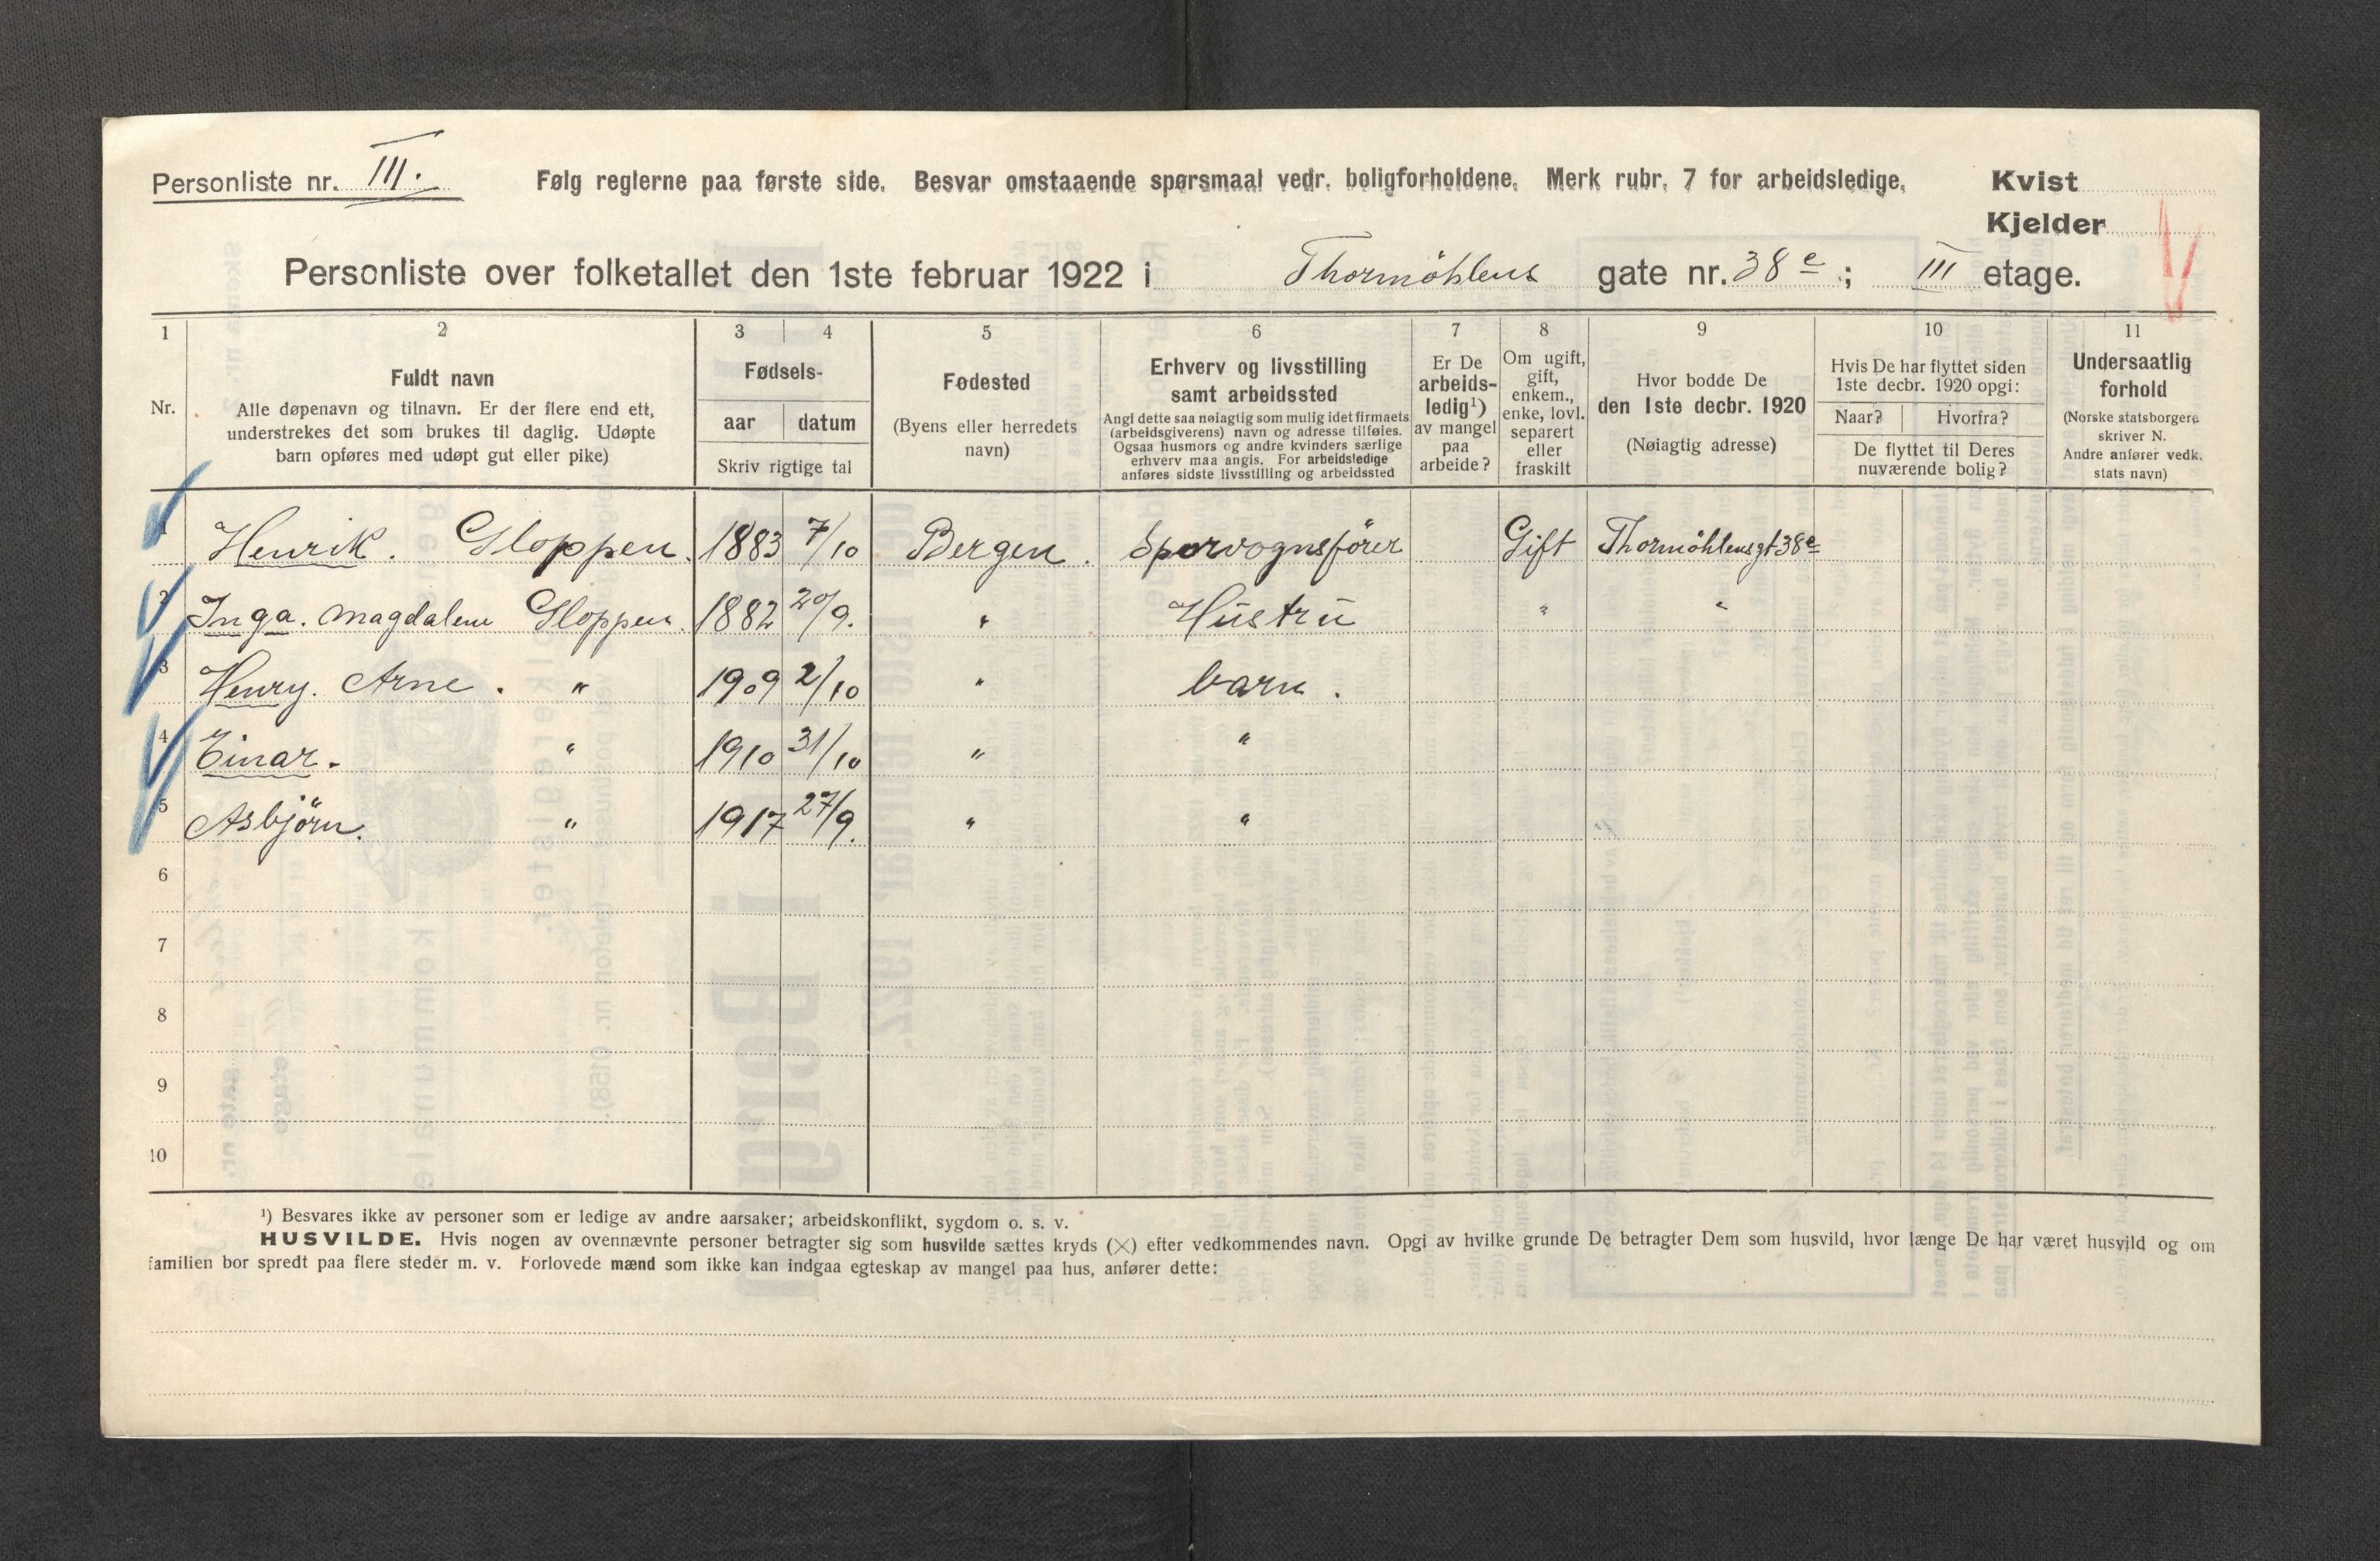 Personliste nr. III. Følg reglerne paa første side. Besvar omstaaende spørsmaal vedr. boligforholdene. Merk rubr. 7 for arbeidsledige. Kvist
Kjelder
Personliste over folketallet den 1ste februar 1922 i Thormöhlens gate nr. 38 e ; III etage.
1 2 3 4 5 6 7 8 9 10 11
Nr.
Fuldt navn
Alle døpenavn og tilnavn. Er der flere end ett,
understrekes det som brukes til daglig. Udøpte
barn opføres med udøpt gut eller pike)
Fødsels-
aar datum
Skriv rigtige tal
Fødested
(Byens eller herredets
navn)
Erhverv og livsstilling
samt arbeidssted
Angi dette saa nøiagtig som mulig idet firmaets
(arbeidsgiverens) navn og adresse tilføies.
Ogsaa husmors og andre kvinders særlige
erhverv maa angis. For arbeidsledige
anføres sidste livsstilling og arbeidssted
Er De
arbeids-
ledig¹)
av mangel
paa
arbeide?
Om ugift,
gift,
enkem.,
enke, lovl.
separert
eller
fraskilt
Hvor bodde De
den 1ste decbr. 1920
(Nøiagtig adresse)
Hvis De har flyttet siden
1ste decbr. 1920 opgi:
Naar? Hvorfra?
De flyttet til Deres
nuværende bolig?
Undersaatlig
forhold
(Norske statsborgere
skriver N.
Andre anfører vedk.
stats navn)
1 Henrik. Gloppen. 1883 7/10 Bergen. Sporvognsfører Gift Thormöhlensgt 38e
2 Inga. Magdalene Gloppen. 1882 20/9. " Hustru " "
3 Henry. Arne. " 1909 2/10 " barn.
4 Einar. " 1910 31/10 " "
5 Asbjørn. " 1917 27/9. " "
6
7
8
9
10
¹) Besvares ikke av personer som er ledige av andre aarsaker; arbeidskonflikt, sygdom o. s. v.
HUSVILDE. Hvis nogen av ovennævnte personer betragter sig som husvilde sættes kryds (×) efter vedkommendes navn. Opgi av hvilke grunde De betragter Dem som husvild, hvor længe De har været husvild og om
familien bor spredt paa flere steder m. v. Forlovede mænd som ikke kan indgaa egteskap av mangel paa hus, anfører dette: